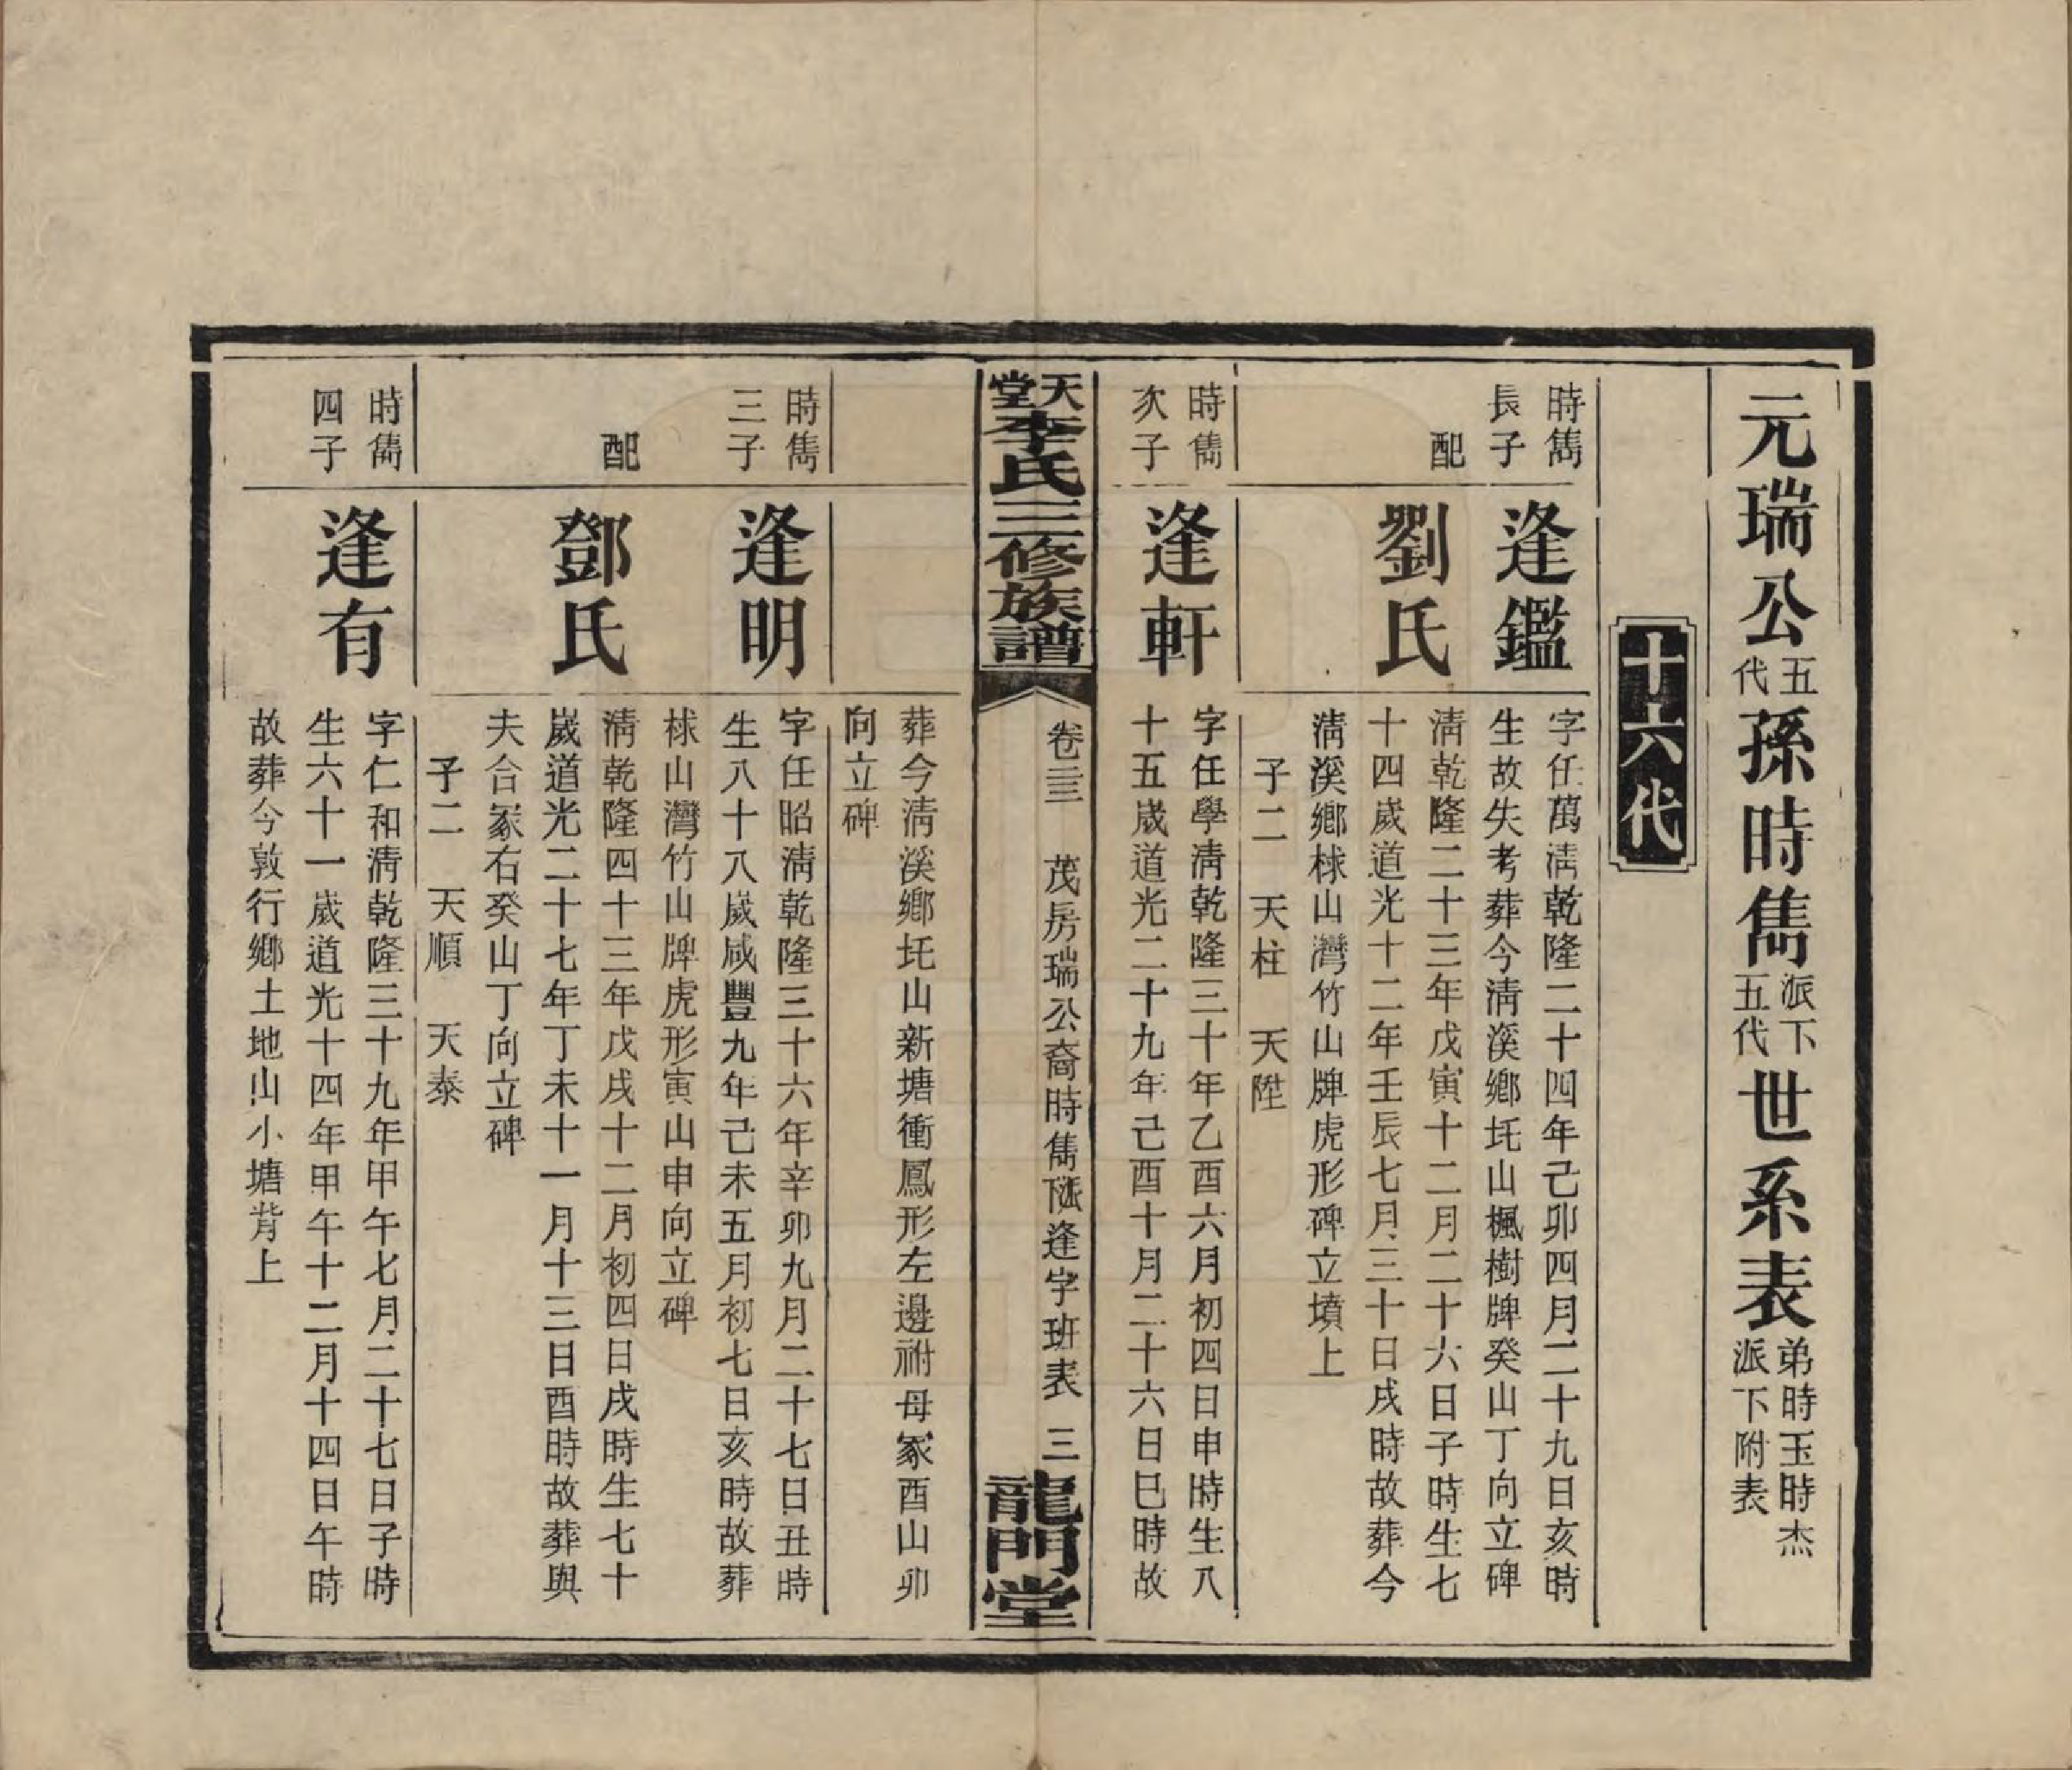 元瑞公五代孫時雋派下五代世系表弟時玉時杰派下附表
十六代
時雋長子
逢鑑
字任萬淸乾隆二十四年己卯四月二十九日亥時
生故失考葬今淸溪鄉圫山楓樹牌癸山丁向立碑
配
劉氏
淸乾隆二十三年戊寅十二月二十六日子時生七
十四歲道光十二年壬辰七月三十日戌時故葬今
淸溪鄉梂山灣竹山牌虎形碑立墳上
子二 天柱 天陞
時雋次子
逢軒
字任學淸乾隆三十年乙酉六月初四日申時生八
十五歲道光二十九年己酉十月二十六日巳時故
天堂李氏三修族譜
卷三三 茂房瑞公裔時雋派下逢字班表 三
龍門堂
葬今淸溪鄉圫山新塘衝鳳形左邊祔母冢酉山卯
向立碑
時雋三子
逢明
字任昭淸乾隆三十六年辛卯九月二十七日丑時
生八十八歲咸豐九年己未五月初七日亥時故葬
梂山灣竹山牌虎形寅山申向立碑
配
鄧氏
淸乾隆四十三年戊戌十二月初四日戌時生七十
歲道光二十七年丁未十一月十三日酉時故葬與
夫合冢右癸山丁向立碑
子二 天順 天泰
時雋四子
逢有
字仁和淸乾隆三十九年甲午七月二十七日子時
生六十一歲道光十四年甲午十二月十四日午時
故葬今敦行鄉土地山小塘背上